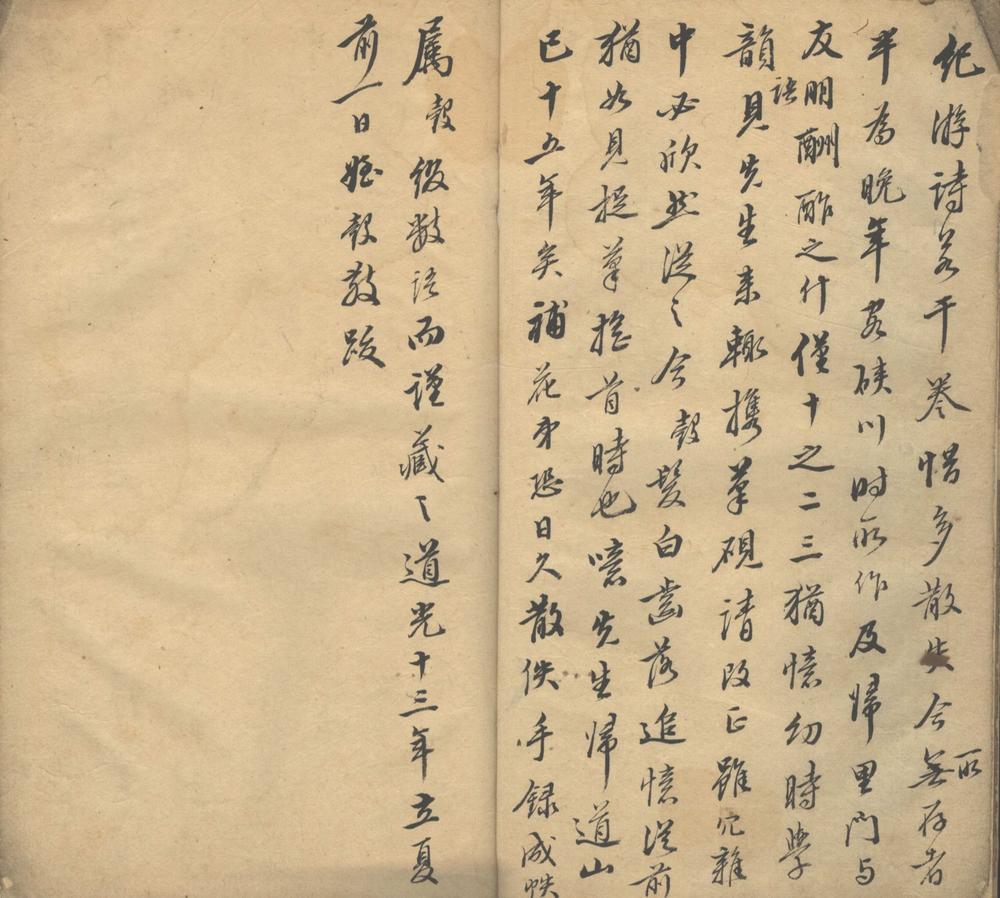 紀游詩若干卷惜多散失今無所存者
半為晚年客硤川时所作及歸里門与
友朋酬酢之什僅十之二三猶憶幼時學
韻語見先生来輒攜筆硯請改正雖冗雜
中必欣然從之今髮白齒落追憶從前
猶如見捉筆搖首時也噫先生歸道山
已十五年矣補花弟恐日久散佚手録成帙
屬綴數語而謹藏之道光十三年立夏
前一日姪敬跋